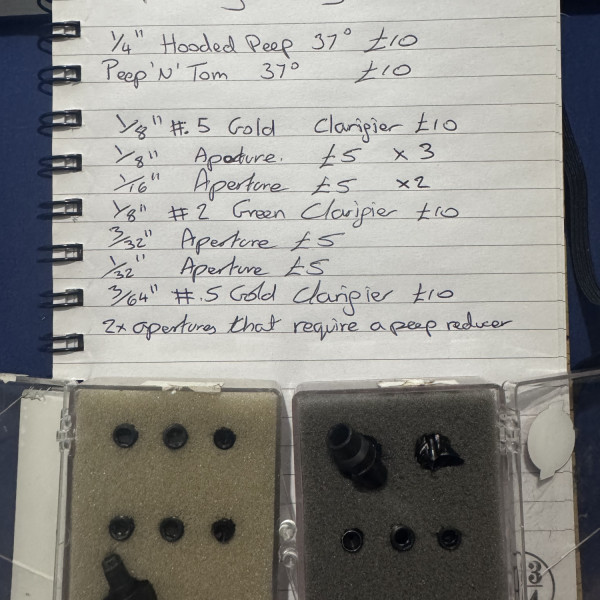 1/4" Hooded Peep 37° £10
Peep'N'Tom 37° £10
1/8" #.5 Gold Clarifier £10
1/8" Aperture. £5 x 3
1/16" Aperture £5 x2
1/8" #2 Green Clarifier £10
3/32" Aperture £5
1/32" Aperture £5
3/64" #.5 Gold Clarifier £10
2x apertures that require a peep reducer
3/4